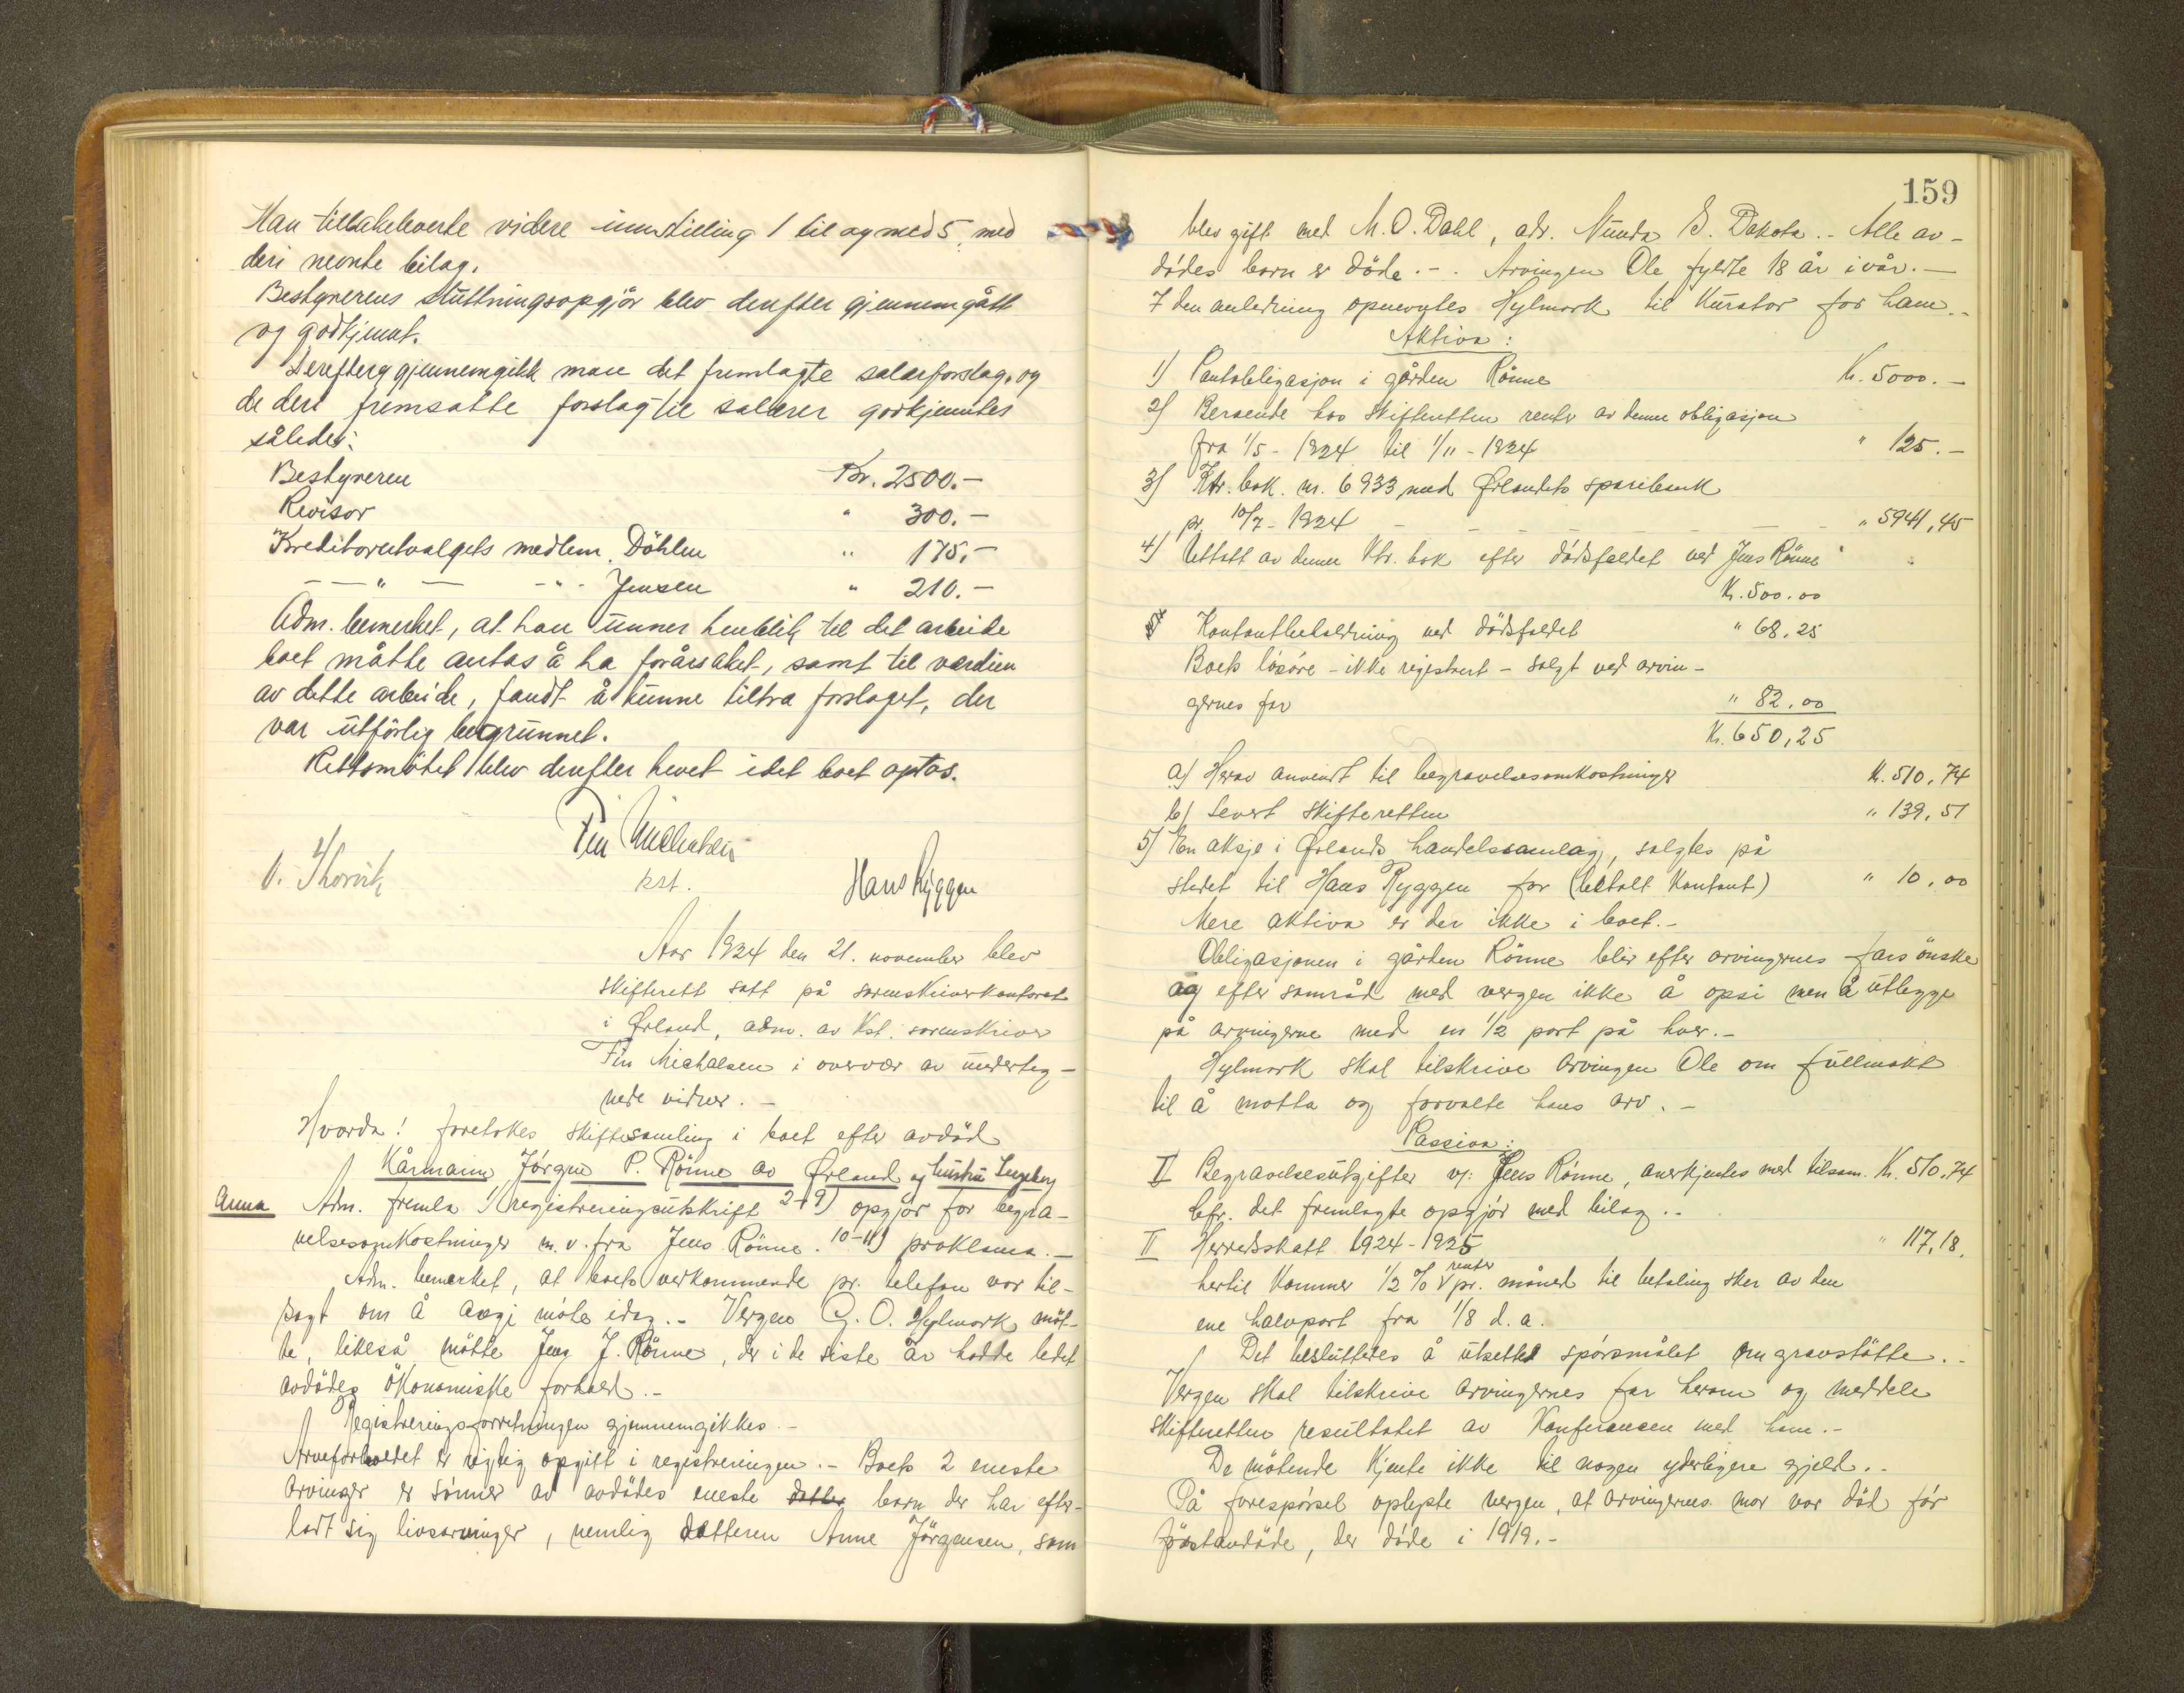 Han tilbakeleverte videre innstilling 1 til og med 5, med
deri nevnte bilag.
Bestyrerens sluttningsopgjör blev derefter gjennemgått
og godkjent.
Derefter gjennemgikk man det fremlagte salærforslag, og
de deri fremsatte forslag til salærer godkjentes
således:
Bestyreren Kr. 2500.-
Revisor " 300.-
Kreditorutvalgets medlem Döhlen " 175,-
— " — - " - Jensen " 210.-
Adm. bemerket, at han under henblik til det arbeide
boet måtte antas å ha forårsaket, samt til verdien
av dette arbeide, fandt å kunne tiltra forslaget, der
var utförlig begrunnet.
Rettsmötet blev derefter hevet idet boet optas.
Fin Michalsen
kst.
Hans Ryggen
Aar 1924 den 21. november blev
skifterett satt på sorenskriverkontoret
i Ørland, adm. av Kst. sorenskriver
Fin Michalsen i overvær av underteg-
nede vidner. -
Hvorda! foretokes skiftesamling i boet efter avdöd
Kårmann Jörgen P. Rönne av Ørland og hustru Ingeborg
Anna Adm. fremla 1) registreringsutskrift 2-9) opgjör for begra-
velsesomkostninger m.v. fra Jens Rönne. 10-11) proklama. -
Adm. bemerket, at boets vedkommende pr. telefon var til-
sagt om å avgi möte idag. - Vergen G. O. Hylmark möt-
te, likeså mötte Jens J. Rönne, der i de siste år hadde ledet
avdödes ökonomiske forhold. -
Registreringsforretningen gjennemgikkes. -
Arveforholdet er rigtig opgitt i registreringen. - Boets 2 eneste
arvinger er sönner av avdödes eneste barn der har efter-
latt sig livsarvinger, nemlig datteren Anne Jörgensen, som
159
blev gift med M. O. Dahl, adr. Nunda S. Dakota. - Alle av-
dödes barn er döde. - . Arvingen Ole fyldte 18 år i vår. -
I den anledning opnevntes Hylmark til Kurator for ham. -
Aktiva:
1) Pantobligasjon i gården Rönne Kr. 5000. -
2) Beroende hos skifteretten renter av denne obligasjon
fra 1/5 - 1924 til 1/11 - 1924 " 125. -
3) Ktr. bok nr. 6933 med Ørlandets sparebank
pr. 10/7 - 1924 - - - - " 5941,45
4) Uttatt av denne Ktr. bok efter dödsfaldet ved Jens Rönne
Kr. 500.00
Kontantbeholdning ved dödsfaldet " 68.25
Boets lösöre - ikke registrert - solgt ved arvin-
gernes far " 82.00
Kr. 650,25
a) Herav anvendt til begravelsesomkostninger Kr. 510.74
b) Levert skifteretten " 139,51
5) En aksje i Ørlands handelssamlag, solgtes på
stedet til Hans Ryggen for (betalt kontant) " 10.00
Mere aktiva er der ikke i boet. -
Obligasjonen i gården Rönne blir efter arvingernes fars önske
og efter samråd med vergen ikke å opsi men å utlegge
på arvingerne med en 1/2 part på hver. -
Hylmark skal tilskrive arvingen Ole om fullmakt
til å motta og forvalte hans arv. -
Passiva:
I Begravelsesutgifter v/ Jens Rönne, anerkjentes med tilsam. Kr. 510.74
bfr. det fremlagte opgjör med bilag. -
II Herredsskatt 1924-1925 " 117,18.
hertil kommer 1/2 % renter pr. måned til betaling sker av den
ene halvpart fra 1/8 d. a.
Det besluttedes å utsette spörsmålet om gravstötte. -
Vergen skal tilskrive arvingernes far herom og meddele
skifteretten resultatet av konferansen med ham. -
De mötende kjente ikke til nogen yderligere gjeld. -
På forespörsel oplyste vergen, at arvingernes mor var död för
förstavdöde, der döde i 1919. -